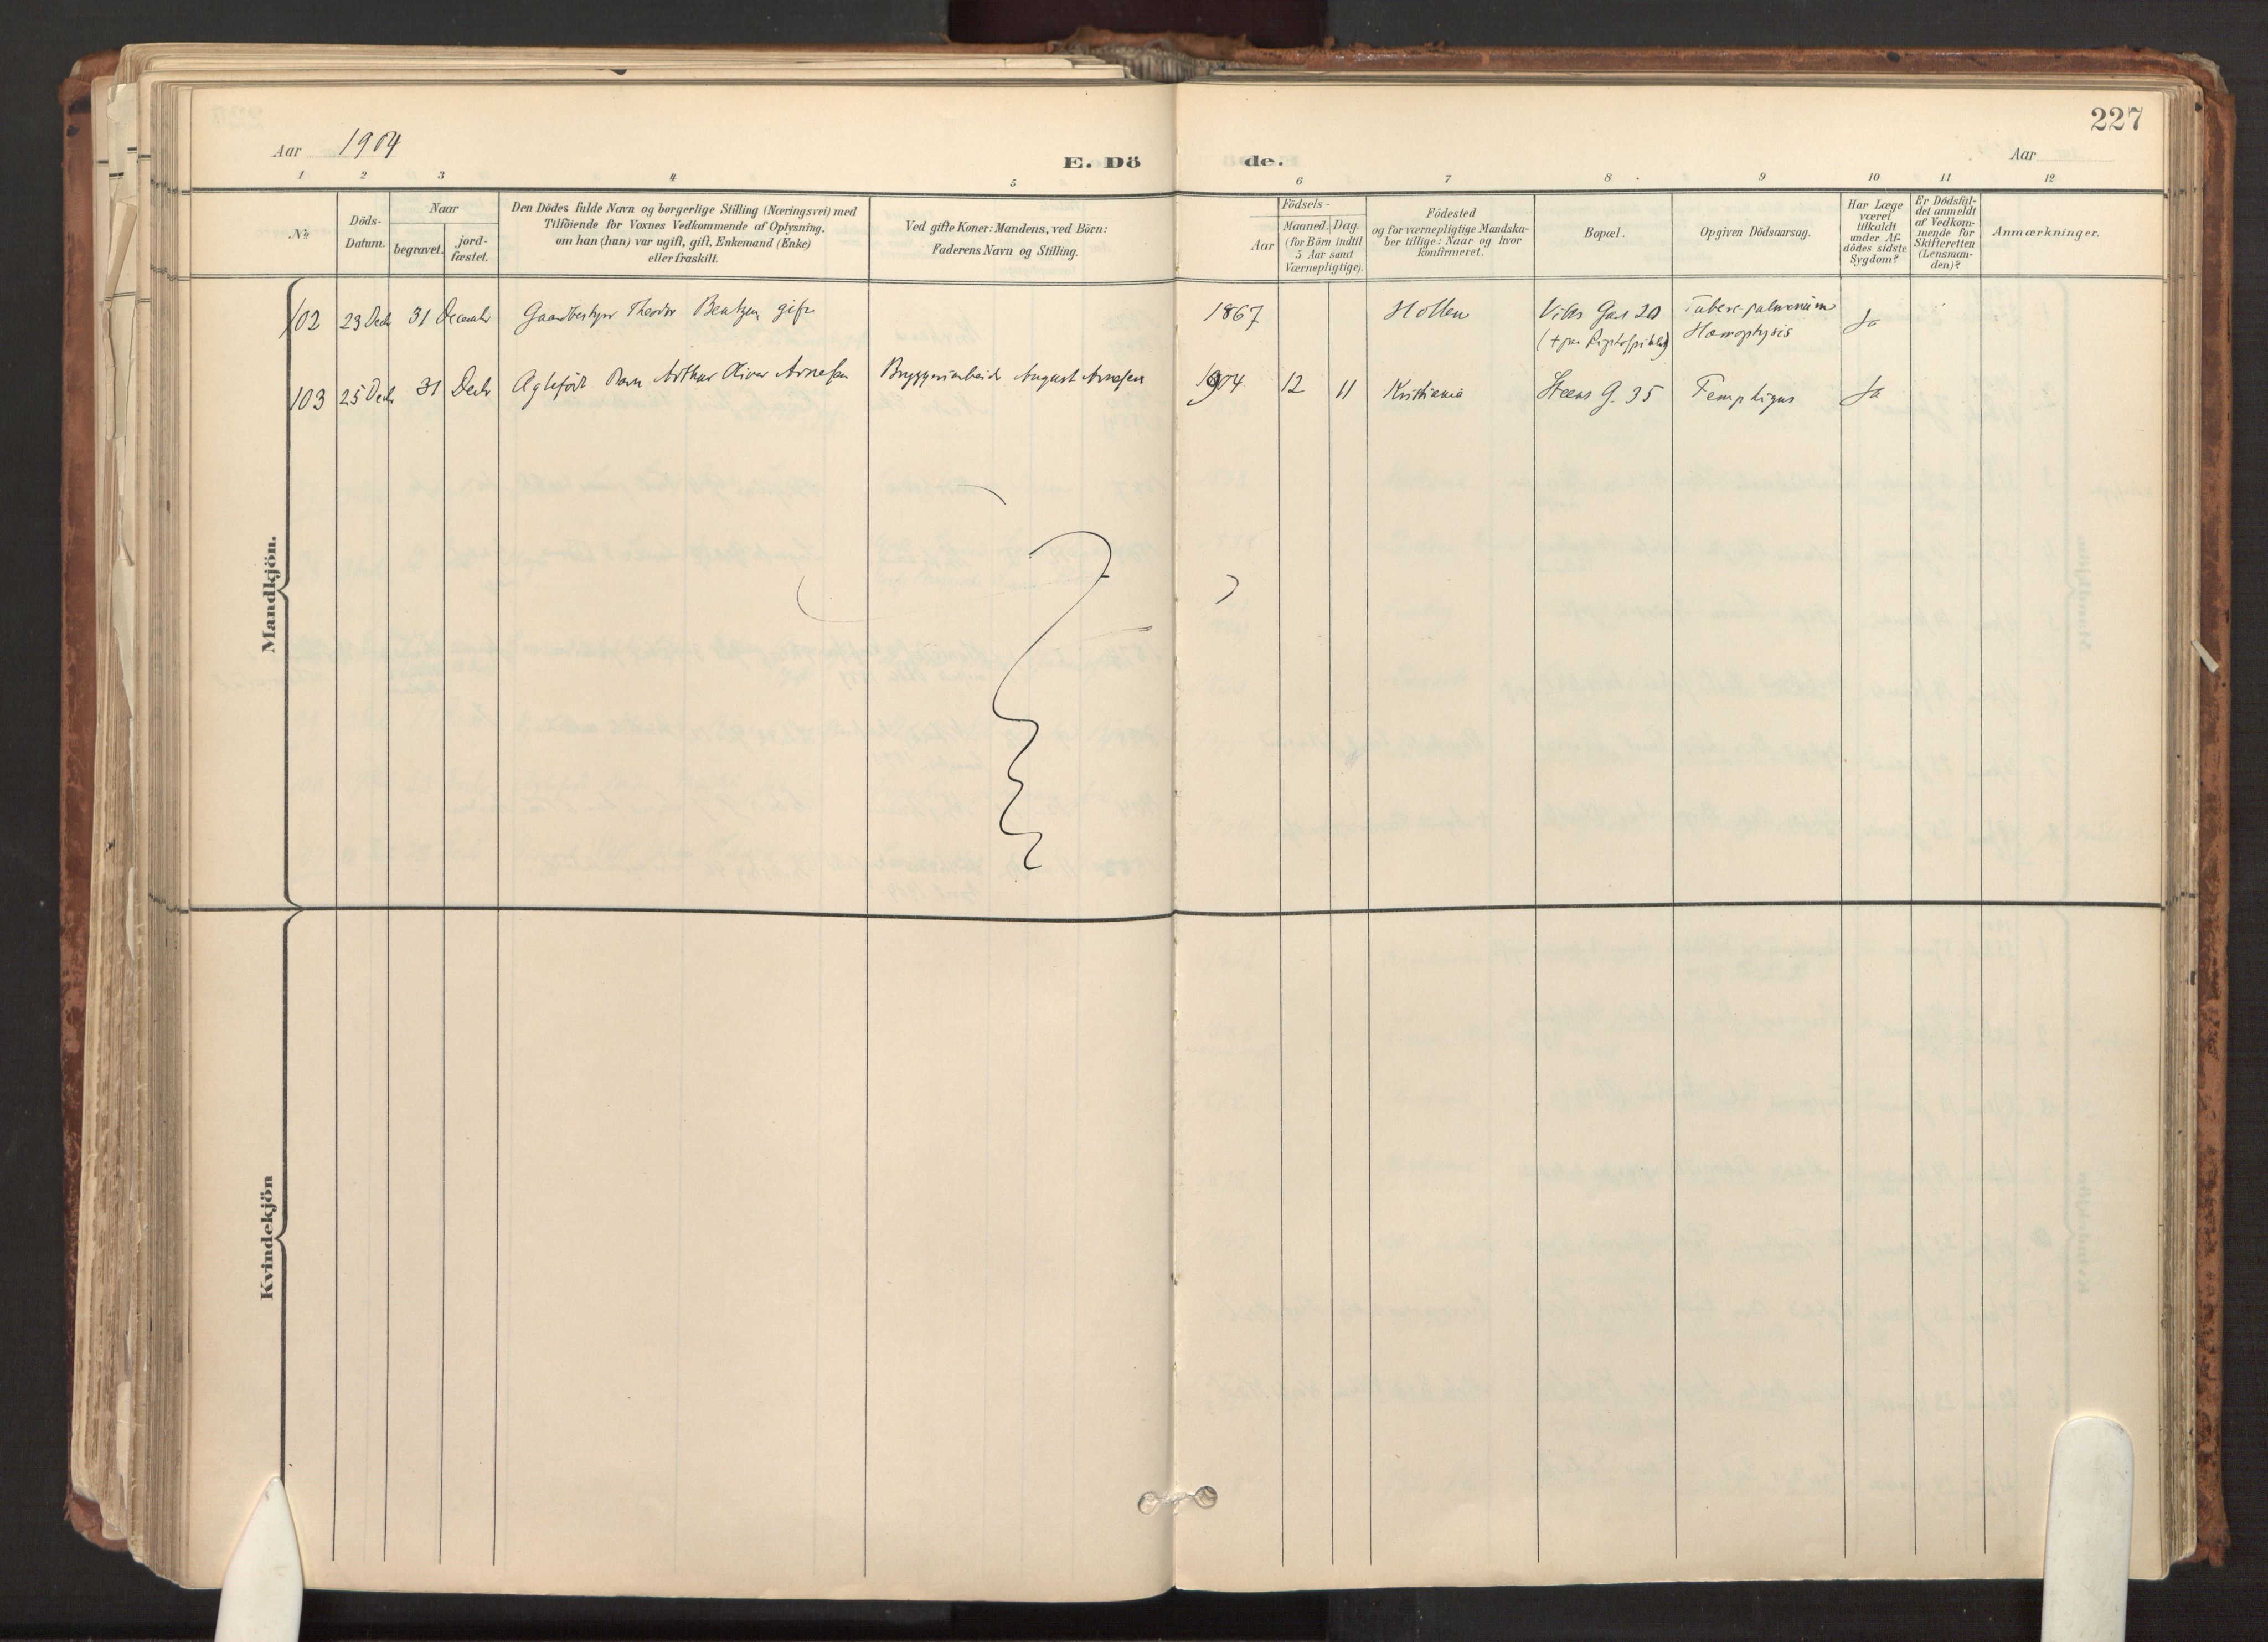 227
Aar 1904
E. Dö de.
Aar
1 2 3 4 5 6 7 8 9 10 11 12
No
Döds-
Datum.
Naar
begravet.
jord-
fæstet.
Den Dödes fulde Navn og borgerlige Stilling (Næringsvei) med
Tilföiende for Voxnes Vedkommende af Oplysning,
om han (hun) var ugift, gift, Enkemand (Enke)
eller fraskilt.
Ved gifte Koner: Mandens, ved Börn:
Faderens Navn og Stilling.
Födsels-
Aar
Maaned. Dag.
(for Börn indtil
5 Aar samt
Værnepligtige).
Födested
og for værnepligtige Mandska-
ber tillige: Naar og hvor
konfirmeret.
Bopæl.
Opgiven Dödsaarsag.
Har Læge
været
tilkaldt
under Af-
dödes sidste
Sygdom?
Er Dödsfal-
det anmeldt
af Vedkom-
mende for
Skifteretten
(Lensman-
den)?
Anmærkninger.
Mandkjön.
102 23 Decbr 31 December Gaardbestyrer Theodor Bentzen gift 1867 Holten Vibes Gad 20 Tuberc. pulmonum Ja
Hæmoptysis
103 25 Decbr 31 Decbr Ægtefödt Barn Arthur Oliver Arnesen Bryggeriarbeider August Arnesen 1904 12 11 Kristiania Steens G. 35 Pemphigus Ja
Kvindekjön